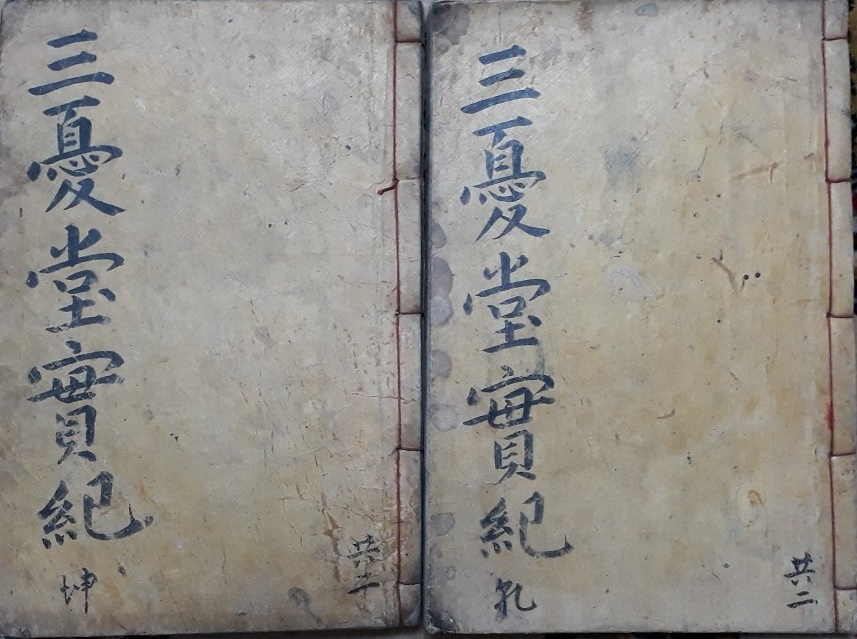 三憂堂實紀 乾
共二
三憂堂實紀 坤
共二